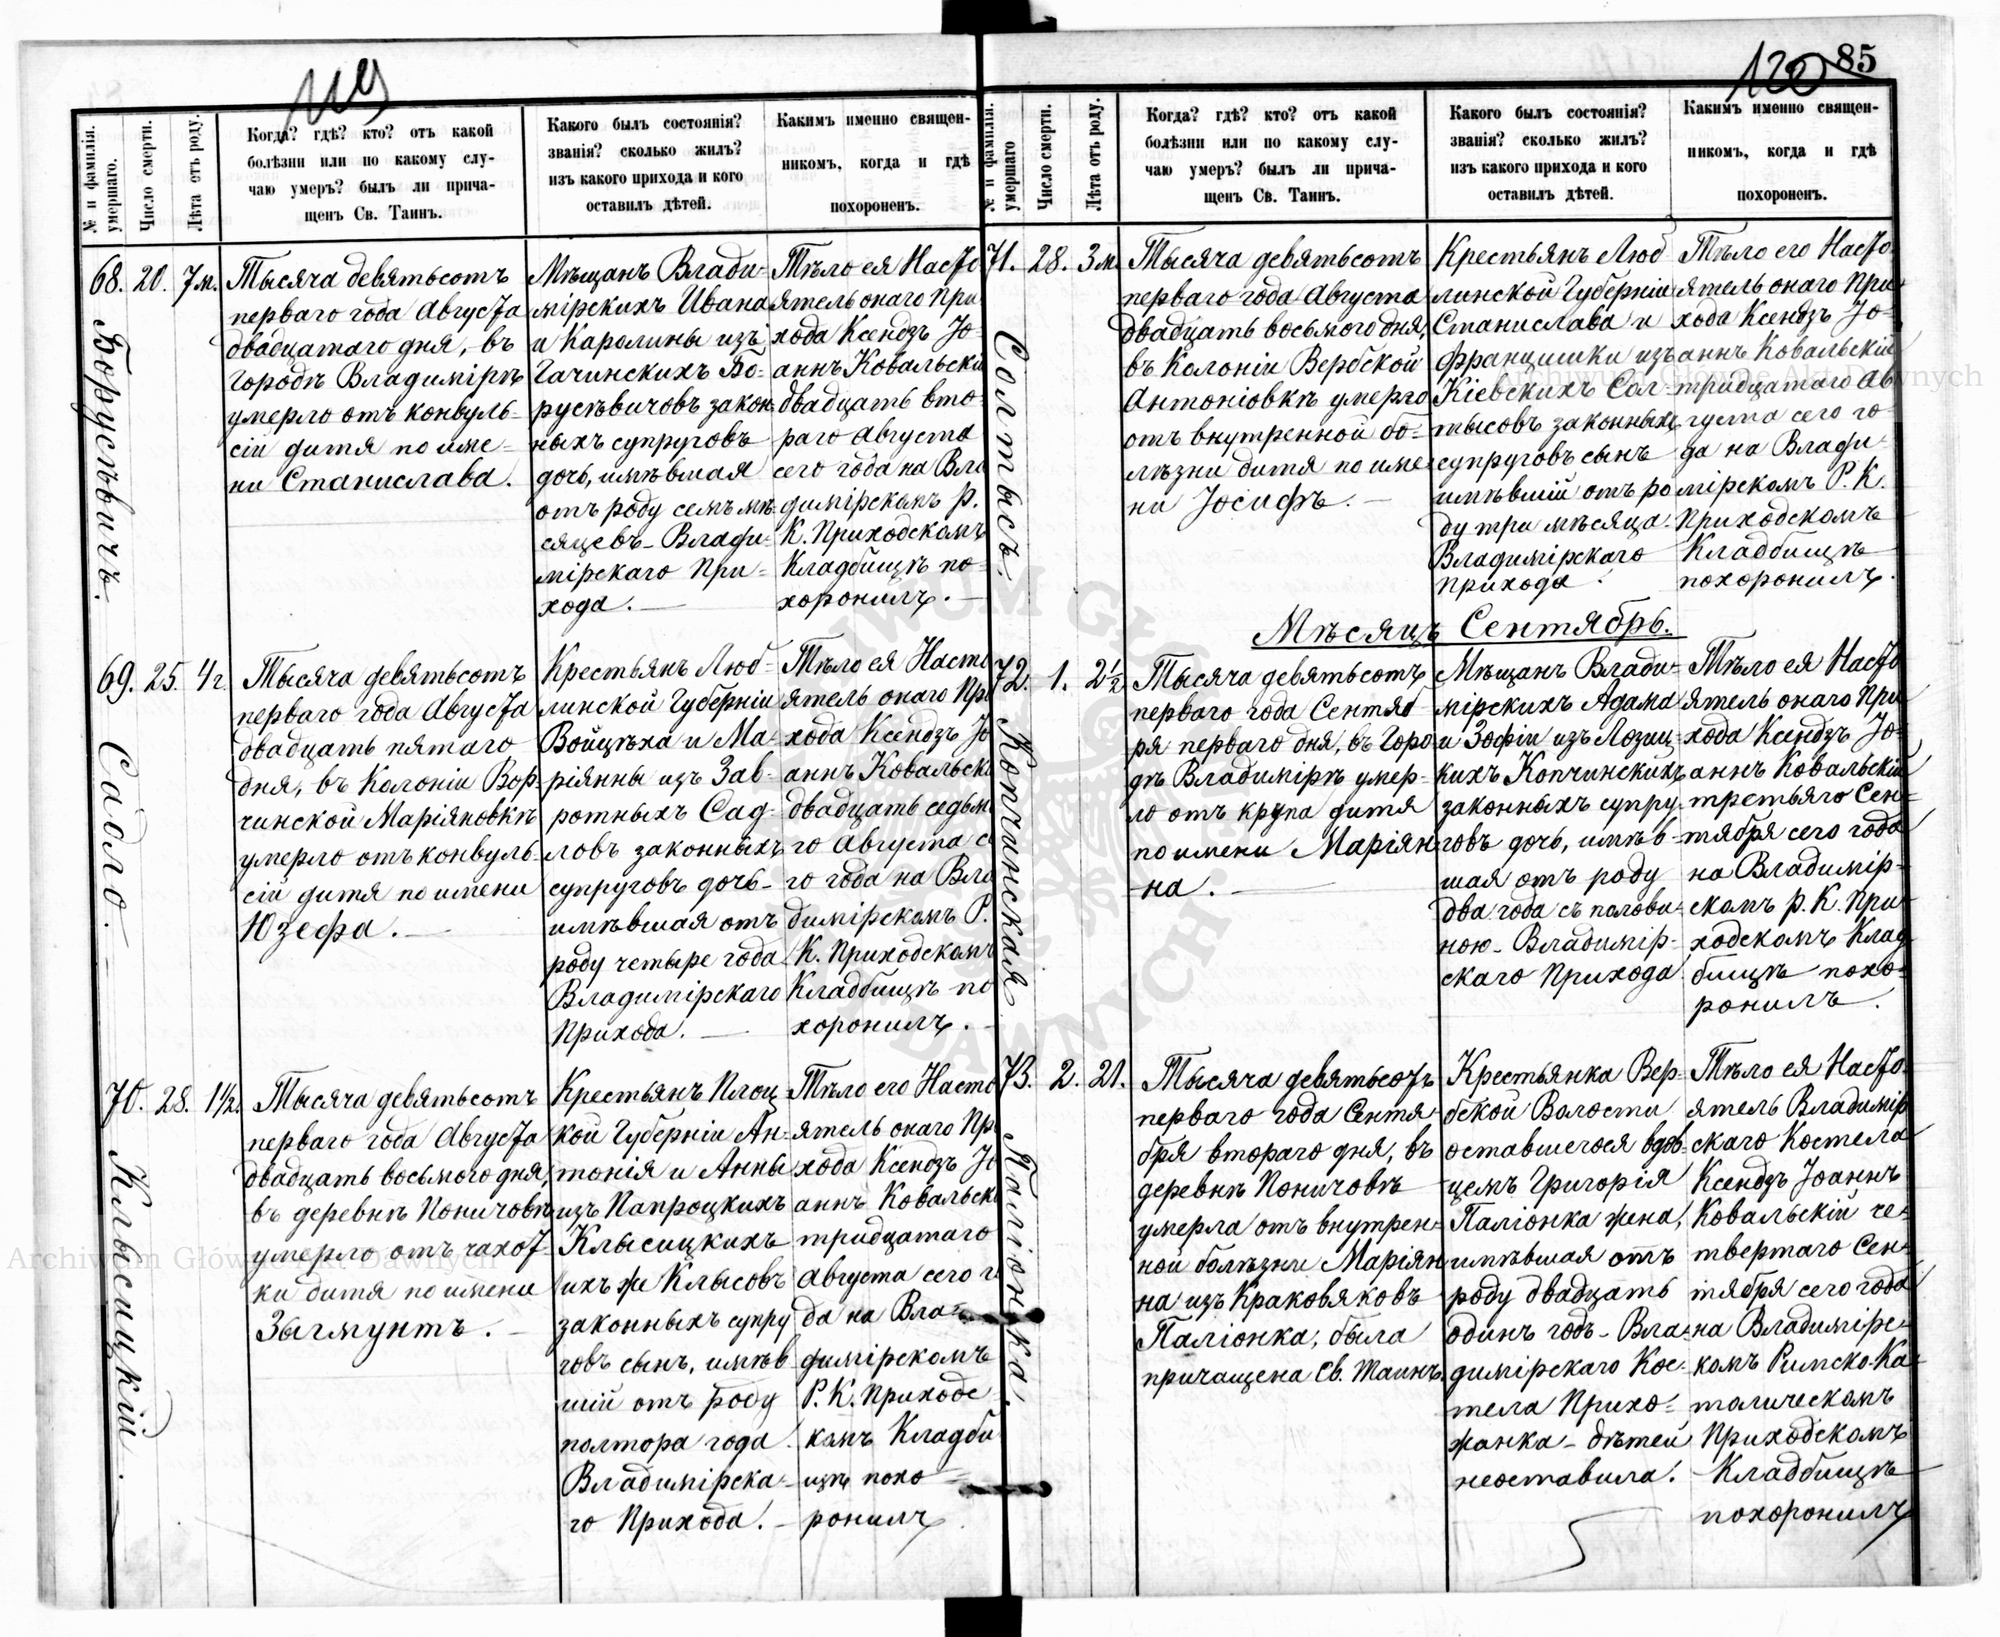 119
№ и фамилія умершаго.
Число смерти.
Лѣта отъ роду.
Когда? гдѣ? кто? отъ какой
болѣзни или по какому слу-
чаю умеръ? былъ ли прича-
щенъ Св. Таинъ.
Какого былъ состоянія?
званія? сколько жилъ?
изъ какого прихода и кого
оставилъ дѣтей.
Какимъ именно священ-
никомъ, когда и гдѣ
похороненъ.
68. Борусѣвичъ.
20.
7 м.
Тысяча девятьсотъ
перваго года Августа
двадцатаго дня, въ
городѣ Владимірѣ
умерло отъ конвуль-
сіи дитя по име-
ни Станислава.
Мѣщанъ Влади-
мірскихъ Ивана
и Каролины изъ
Гачинскихъ Бо-
русѣвичовъ закон
ныхъ супруговъ
дочь, имѣвшая
отъ роду семь мѣ-
сяцевъ - Влади-
мірскаго При-
хода.
Тѣло ея Насто
ятель онаго При
хода Ксендзъ Іо-
аннъ Ковальскі
двадцать вто-
раго Августа
сего года на Вла
димірскомъ Р.
К. Приходскомъ
Кладбищѣ по-
хоронилъ.
69. Садло.
25.
4 г.
Тысяча девятьсотъ
перваго года Августа
двадцать пятаго
дня, въ Колоніи Вор-
чинской Маріяновкѣ
умерло отъ конвуль-
сіи дитя по имени
Юзефа.
Крестьянъ Люб-
линской Губерніи
Войцѣха и Ма-
ріянны изъ Зав-
ротныхъ Сад-
ловъ законныхъ
супруговъ дочь-
имѣвшая отъ
роду четыре года
Владимірскаго
Прихода.
Тѣло ея Насто
ятель онаго При
хода Ксендзъ Іо
аннъ Ковальскі
двадцать седьм
го Августа се
го года на Вла
димірскомъ Р.
К. Приходскомъ
Кладбищѣ по
хоронилъ.
70. Клысицкій.
28.
1½.
Тысяча девятьсотъ
перваго года Августа
двадцать восьмого дня,
въ деревнѣ Поничовѣ
умерло отъ чахот-
ки дитя по имени
Зыгмунтъ.
Крестьянъ Плоц
кой Губерніи Ан-
тонія и Анны
изъ Папроцкихъ
Клысицкихъ
ихъ же Клысовъ
законныхъ супру
говъ сынъ, имѣв
шій отъ роду
полтора года
Владимірска-
го Прихода.
Тѣло его Насто
ятель онаго Пр
хода Ксендзъ Іо
аннъ Ковальскі
тридцатаго
Августа сего г
да на Вла-
димірскомъ
Р. К. Приходс
комъ Кладби
щѣ похо
ронилъ
120
85
№ и фамилія умершаго
Число смерти.
Лѣта отъ роду.
Когда? гдѣ? кто? отъ какой
болѣзни или по какому слу-
чаю умеръ? былъ ли прича-
щенъ Св. Таинъ.
Какого былъ состоянія?
званія? сколько жилъ?
изъ какого прихода и кого
оставилъ дѣтей.
Какимъ именно священ-
никомъ, когда и гдѣ
похороненъ.
71. Солтысъ.
28.
3 м.
Тысяча девятьсотъ
перваго года Августа
двадцать восьмого дня,
въ Колоніи Вербской
Антоніовкѣ умерло
отъ внутренной бо-
лѣзни дитя по име-
ни Іосифъ.
Крестьянъ Люб
линской Губерніи
Станислава и
Францишки изъ
Кіевскихъ Сол-
тысовъ законныхъ
супруговъ сынъ
имѣвшій отъ ро
ду три мѣсяца
Владимірскаго
прихода.
Тѣло его Насто-
ятель онаго При
хода Ксендзъ Іо-
аннъ Ковальскій
тридцатаго Ав
густа сего го-
да на Влади-
мірскомъ Р. К.
Приходскомъ
Кладбищѣ
похоронилъ.
Мѣсяцъ Сентябрь.
72. Копчинская
1.
2½
Тысяча девятьсотъ
перваго года Сентяб
ря перваго дня, въ горо
дѣ Владимірѣ умер-
ло отъ крупа дитя
по имени Маріян-
на.
Мѣщанъ Влади-
мірскихъ Адама
и Зофіи изъ Лозиц-
кихъ Копчинскихъ
законныхъ супру-
говъ дочь, имѣв-
шая отъ роду
два года съ полови-
ною - Владимір-
скаго Прихода
Тѣло ея Насто
ятель онаго При
хода Ксендзъ Іо-
аннъ Ковальскій
третьяго Сен-
тября сего года
на Владимір-
скомъ Р. К. При-
ходскомъ Клад
бищѣ похо-
ронилъ.
73. Паліонка.
2.
21.
Тысяча девятьсотъ
перваго года Сентя-
бря второго дня, въ
деревнѣ Поничовѣ
умерла отъ внутрен-
ной болѣзни Маріян-
на изъ Краковяковъ
Паліонка, была
причащена Св. Таинъ.
Крестьянка Вер-
бской Волости
оставшегося вдов-
цемъ Григорія
Паліонка жена,
имѣвшая отъ
роду двадцать
одинъ годъ - Вла-
димірскаго Кос-
тела Прихо-
жанка - дѣтей
неоставила.
Тѣло ея Насто-
ятель Владимір
скаго Костела
Ксендзъ Іоаннъ
Ковальскій че-
твертаго Сен-
тября сего года
на Владимірс-
комъ Римско-Ка-
толическомъ
Приходскомъ
Кладбищѣ
похоронилъ
Archiwum Główne Akt Dawnych
Archiwum Główne Akt Dawnych